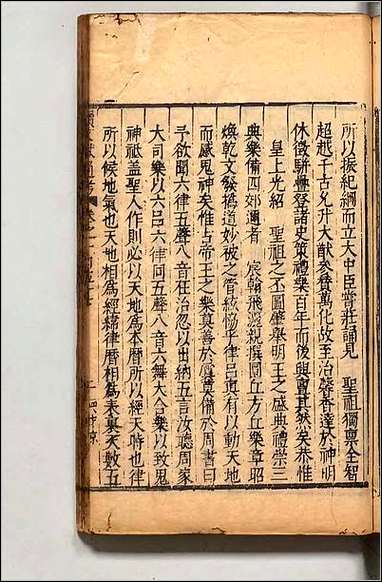 所以振紀綱而立大中臣嘗莊誦見　聖祖獨禀全智
超越千古允升大猷叅賛萬化故至治馨香達於神明
休徵騈疊登諸史策禮樂百年而後興會其然矣恭惟
皇上光紹　聖祖之丕圖肇舉明王之盛典禮崇三
典樂備四郊邇者　宸翰飛灑親撰圜丘方丘樂章昭
煥乾文發撝道妙被之管絃恊乎律呂真有以動天地
而感鬼神矣惟古帝王之樂莫善於虞莫備於周書曰
予欲聞六律五聲八音在治忽以出納五言汝聽周家
大司樂以六呂六律同五聲八音六舞大合樂以致鬼
神祗蓋聖人作則必以天地爲本曆所以經天時也律
所以候地氣也天地相爲經緯律曆相爲表裏天數五